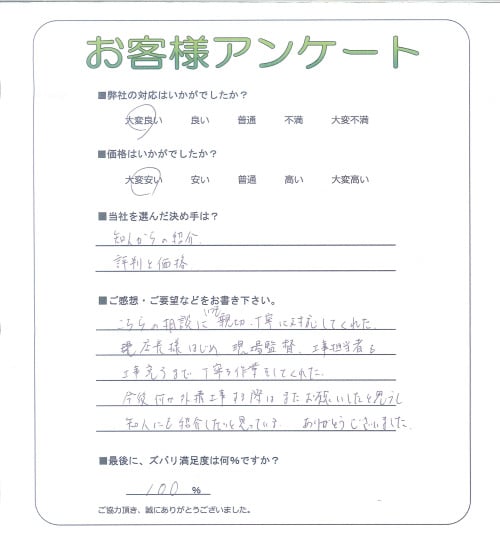 お客様アンケート
■弊社の対応はいかがでしたか？
大変良い 良い 普通 不満 大変不満
■価格はいかがでしたか？
大変安い 安い 普通 高い 大変高い
■当社を選んだ決め手は？
知人からの紹介
評判と価格
■ご感想・ご要望などをお書き下さい。
こちらの相談にいつも親切、丁寧に対応してくれた。
店長様はじめ 現場監督、工事担当者も
工事完了まで 丁寧な作業をしてくれた。
今後何か外構工事する際はまたお願いしたいと思うし
知人にも紹介したいと思っている ありがとうございました。
■最後に、ズバリ満足度は何％ですか？
100 ％
ご協力頂き、誠にありがとうございました。